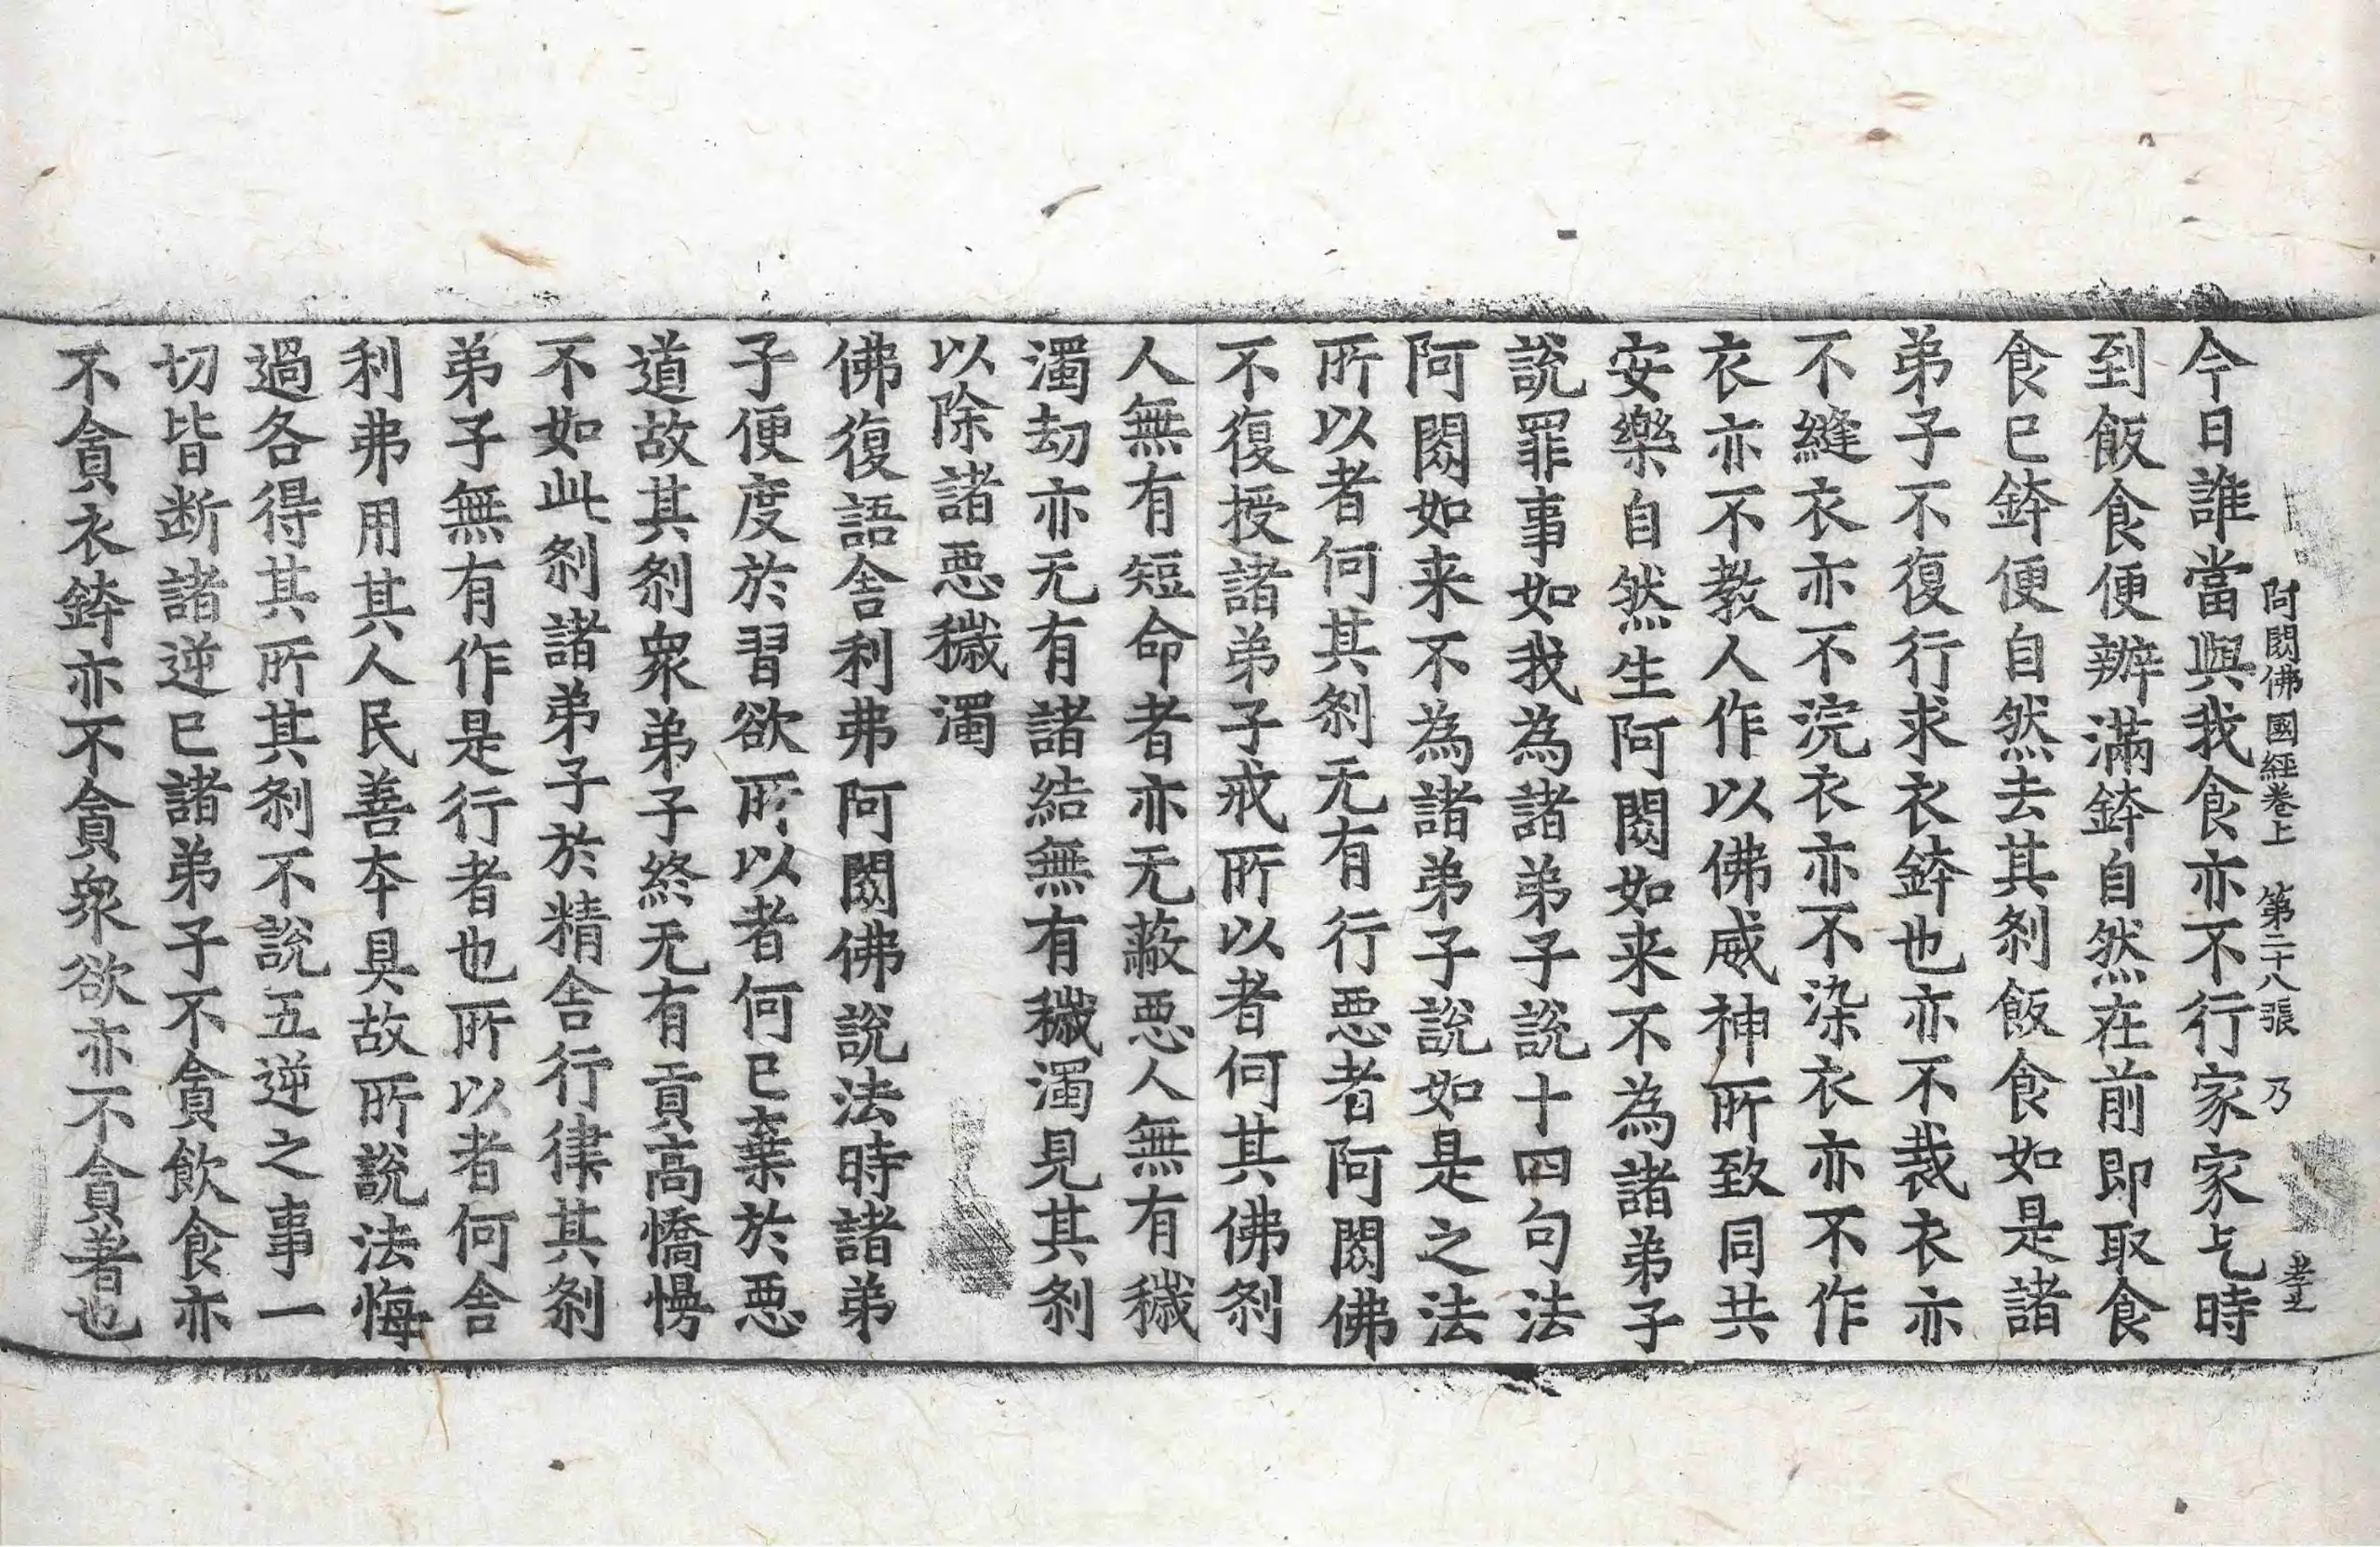 阿閦佛國經卷上 第二十八張 乃 孝之
今日誰當與我食亦不行家家乞時
到飯食便辦滿鉢自然在前即取食
食已鉢便自然去其刹飯食如是諸
弟子不復行求衣鉢也亦不裁衣亦
不縫衣亦不浣衣亦不染衣亦不作
衣亦不教人作以佛威神所致同共
安樂自然生阿閦如来不為諸弟子
說罪事如我為諸弟子說十四句法
阿閦如来不為諸弟子說如是之法
所以者何其刹无有行悪者阿閦佛
不復授諸弟子戒所以者何其佛刹
人無有短命者亦无蔽悪人無有穢
濁劫亦无有諸結無有穢濁見其刹
以除諸悪穢濁
佛復語舎利弗阿閦佛說法時諸弟
子便度於習欲所以者何已棄於悪
道故其刹衆弟子終无有貢高憍慢
不如此刹諸弟子於精舎行律其刹
弟子無有作是行者也所以者何舎
利弗用其人民善夲具故所說法悔
過各得其所其刹不說五逆之事一
切皆断諸逆已諸弟子不貪飲食亦
不貪衣鉢亦不貪衆欲亦不貪著也